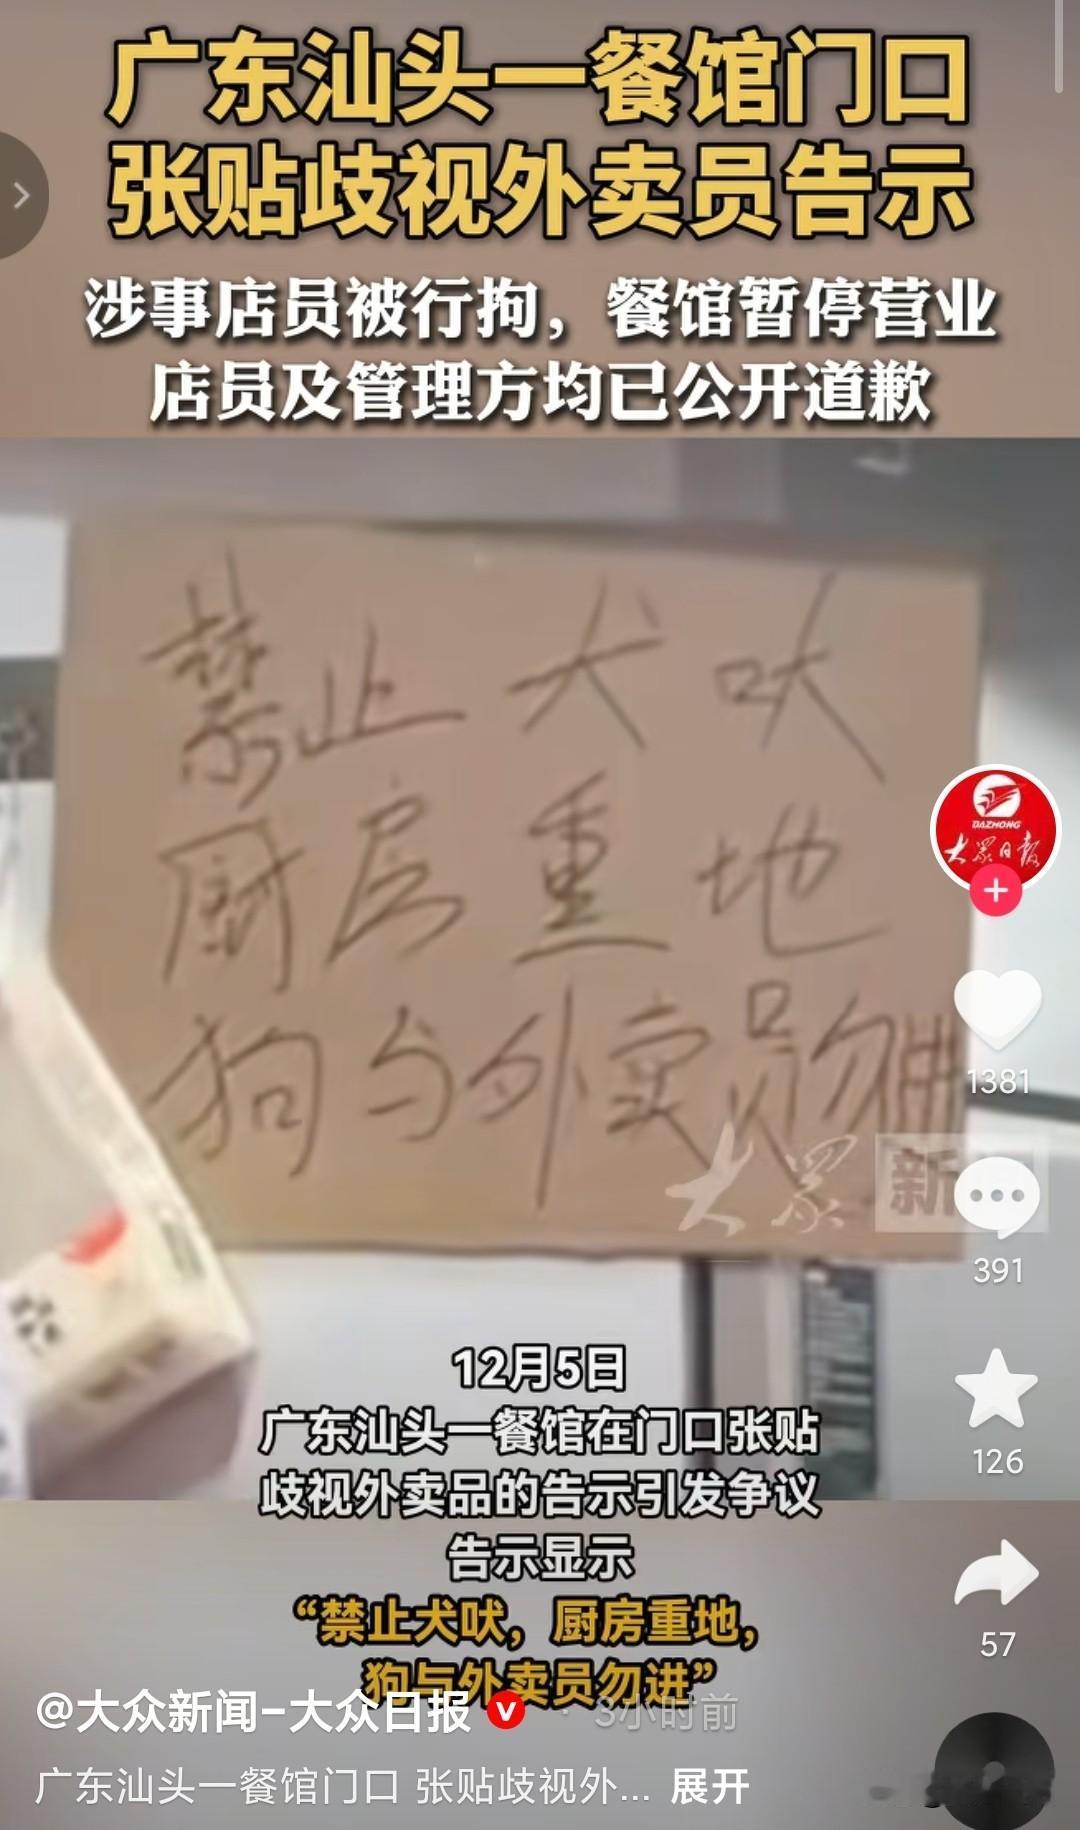 广东汕头一餐馆门口
张贴歧视外卖员告示
涉事店员被行拘，餐馆暂停营业
店员及管理方均已公开道歉
禁止犬吠
厨房重地
狗与外卖员勿进
大众 新
DAZHONG
大众日报
1381
391
126
57
12月5日
广东汕头一餐馆在门口张贴
歧视外卖品的告示引发争议
告示显示
“禁止犬吠，厨房重地，
狗与外卖员勿进”
@大众新闻-大众日报 · 3小时前
广东汕头一餐馆门口 张贴歧视外... 展开